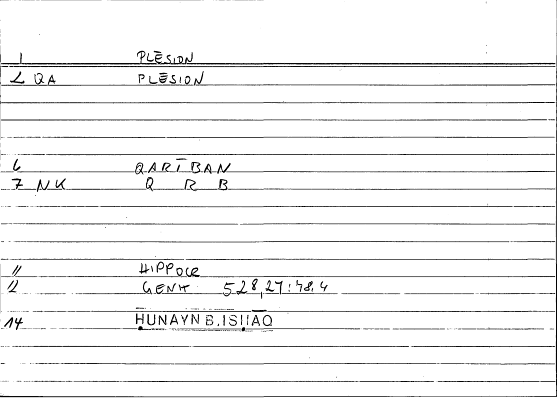 1 PLĒSION
2 QA PLĒSION
6 QARĪBAN
7 NK Q R B
11 HIPPOCR
12 GENIT. 528,27:48,4
14 ḤUNAYN B. ISḤĀQ